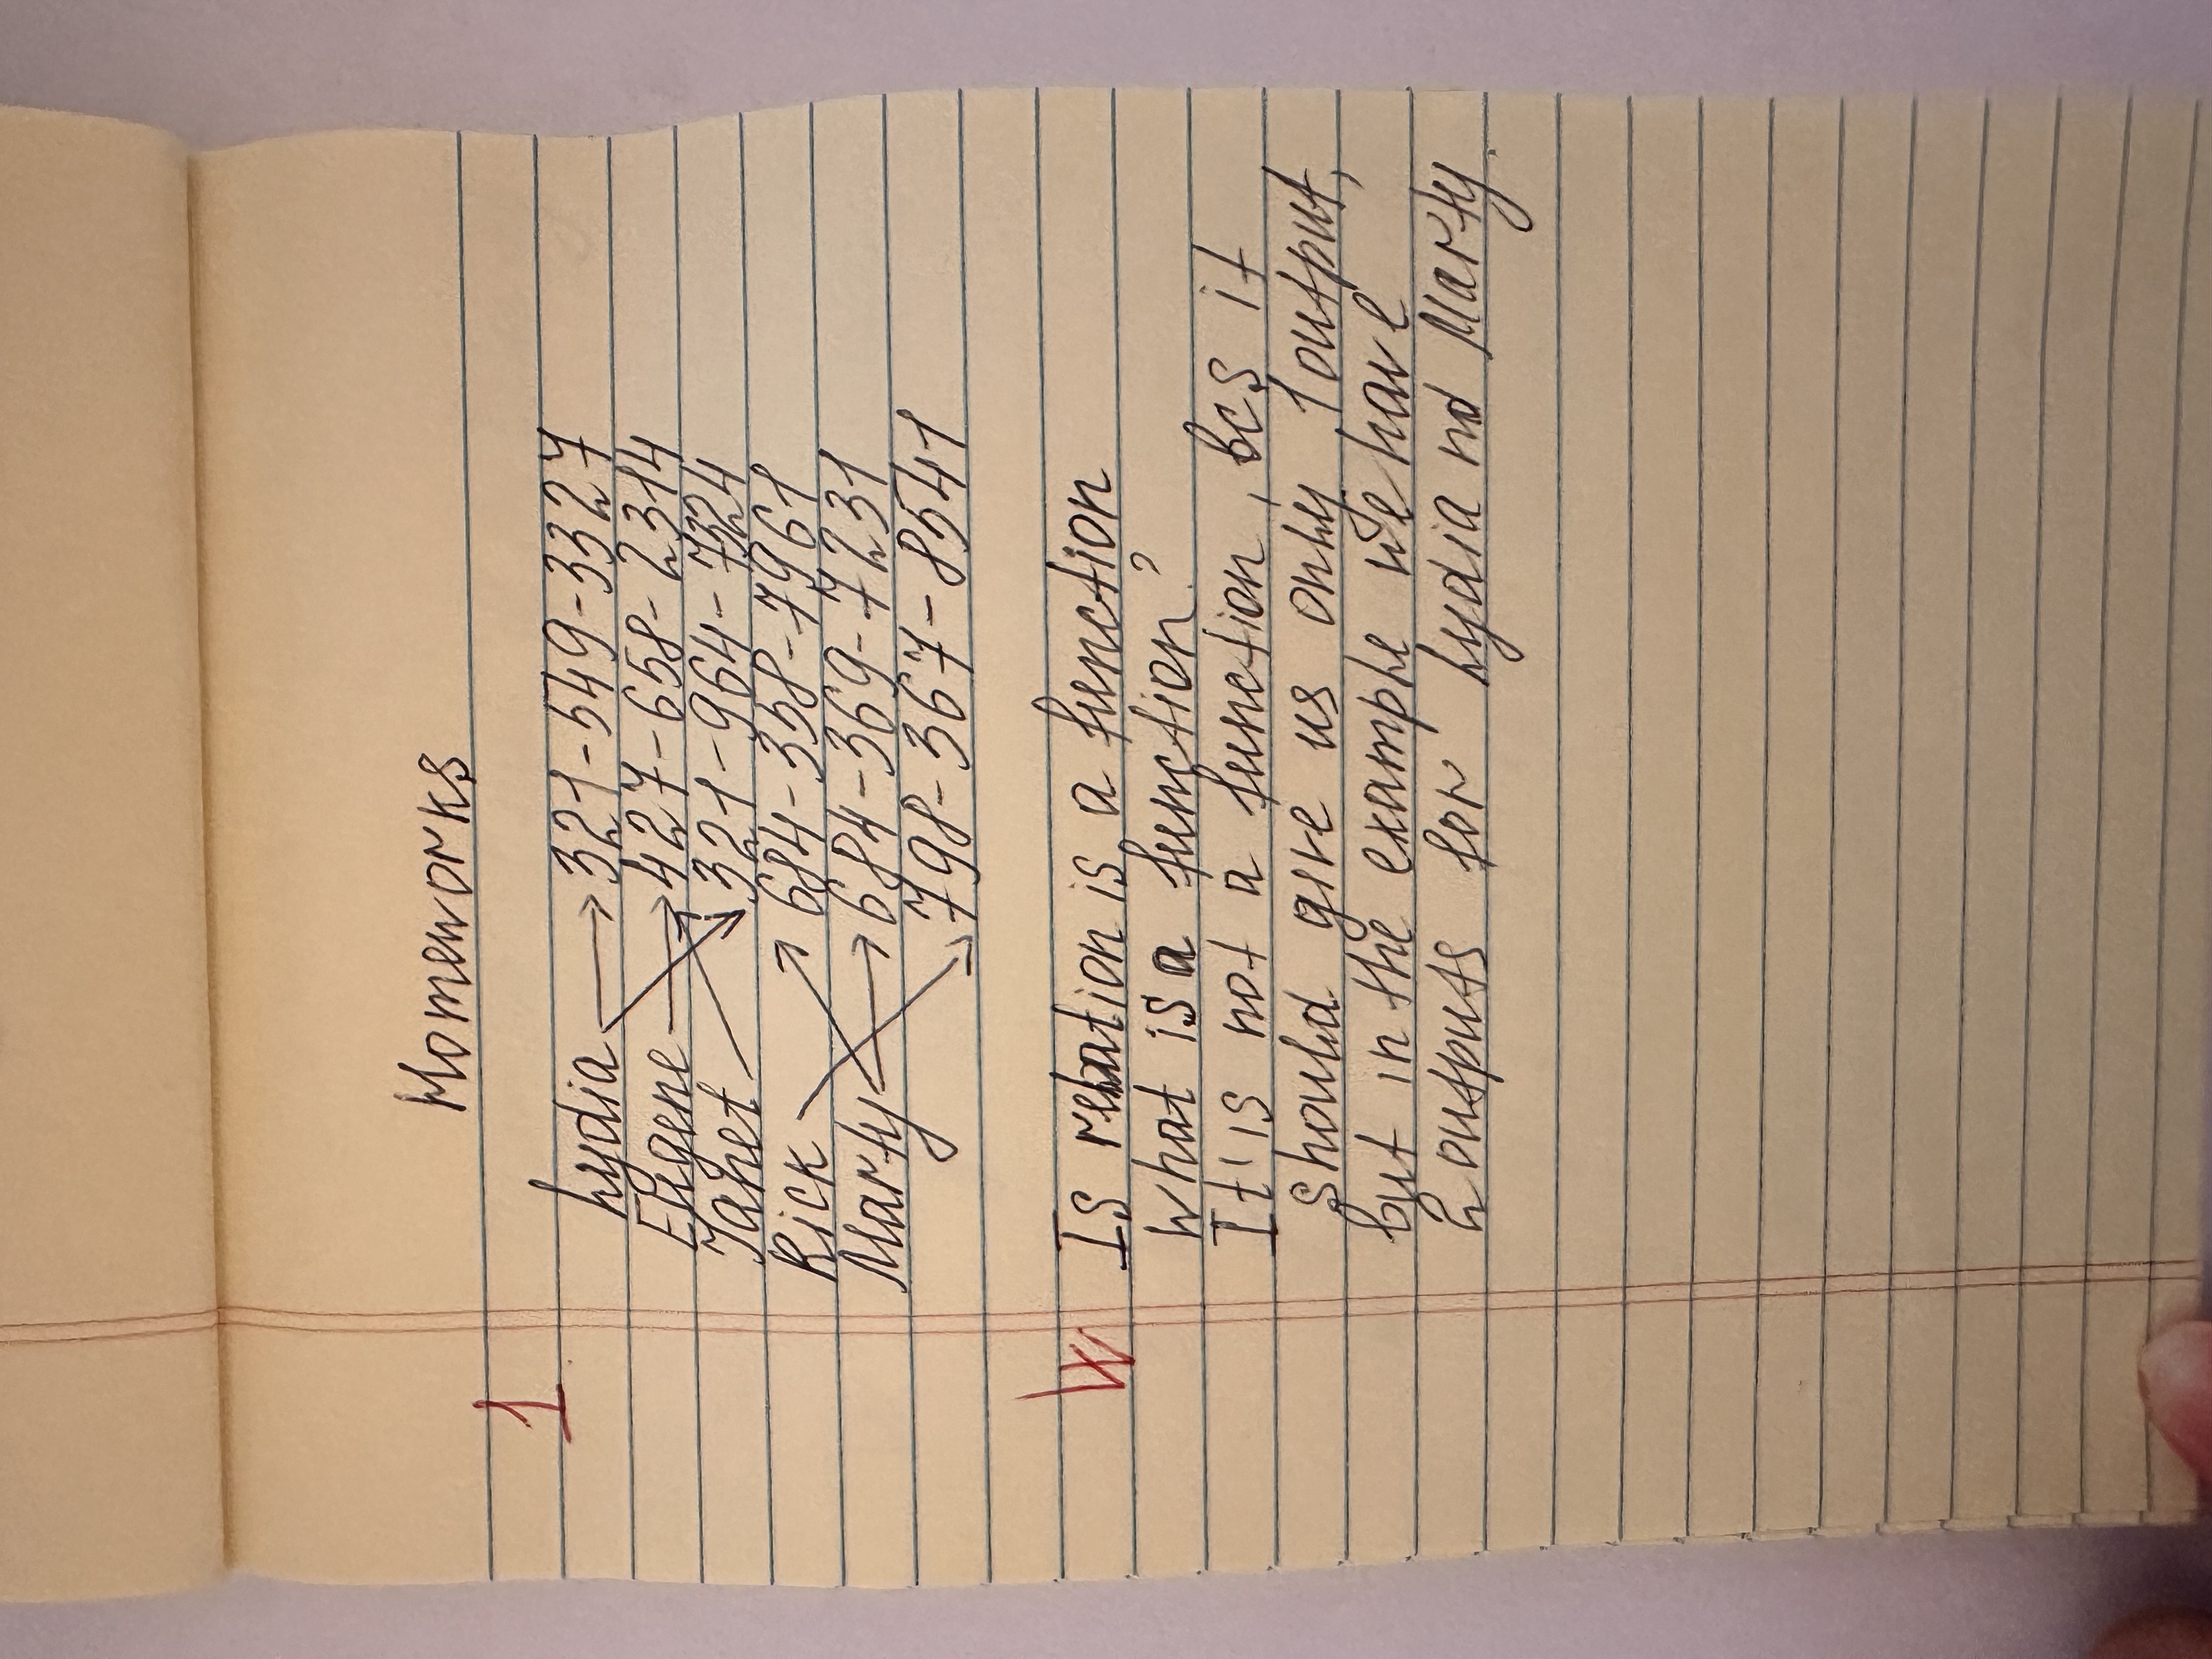 Homeworks
1.
Lydia 321-549-3327
Eugene 427-658-2314
Janet 321-964-7324
Rick 684-358-7961
Marty 684-369-7231
798-367-8541
Is relation is a function
What is a function?
It'is not a function, bcs it
should give us only 1 output,
but in the example we have
2 outputs for Lydia nd Marty.